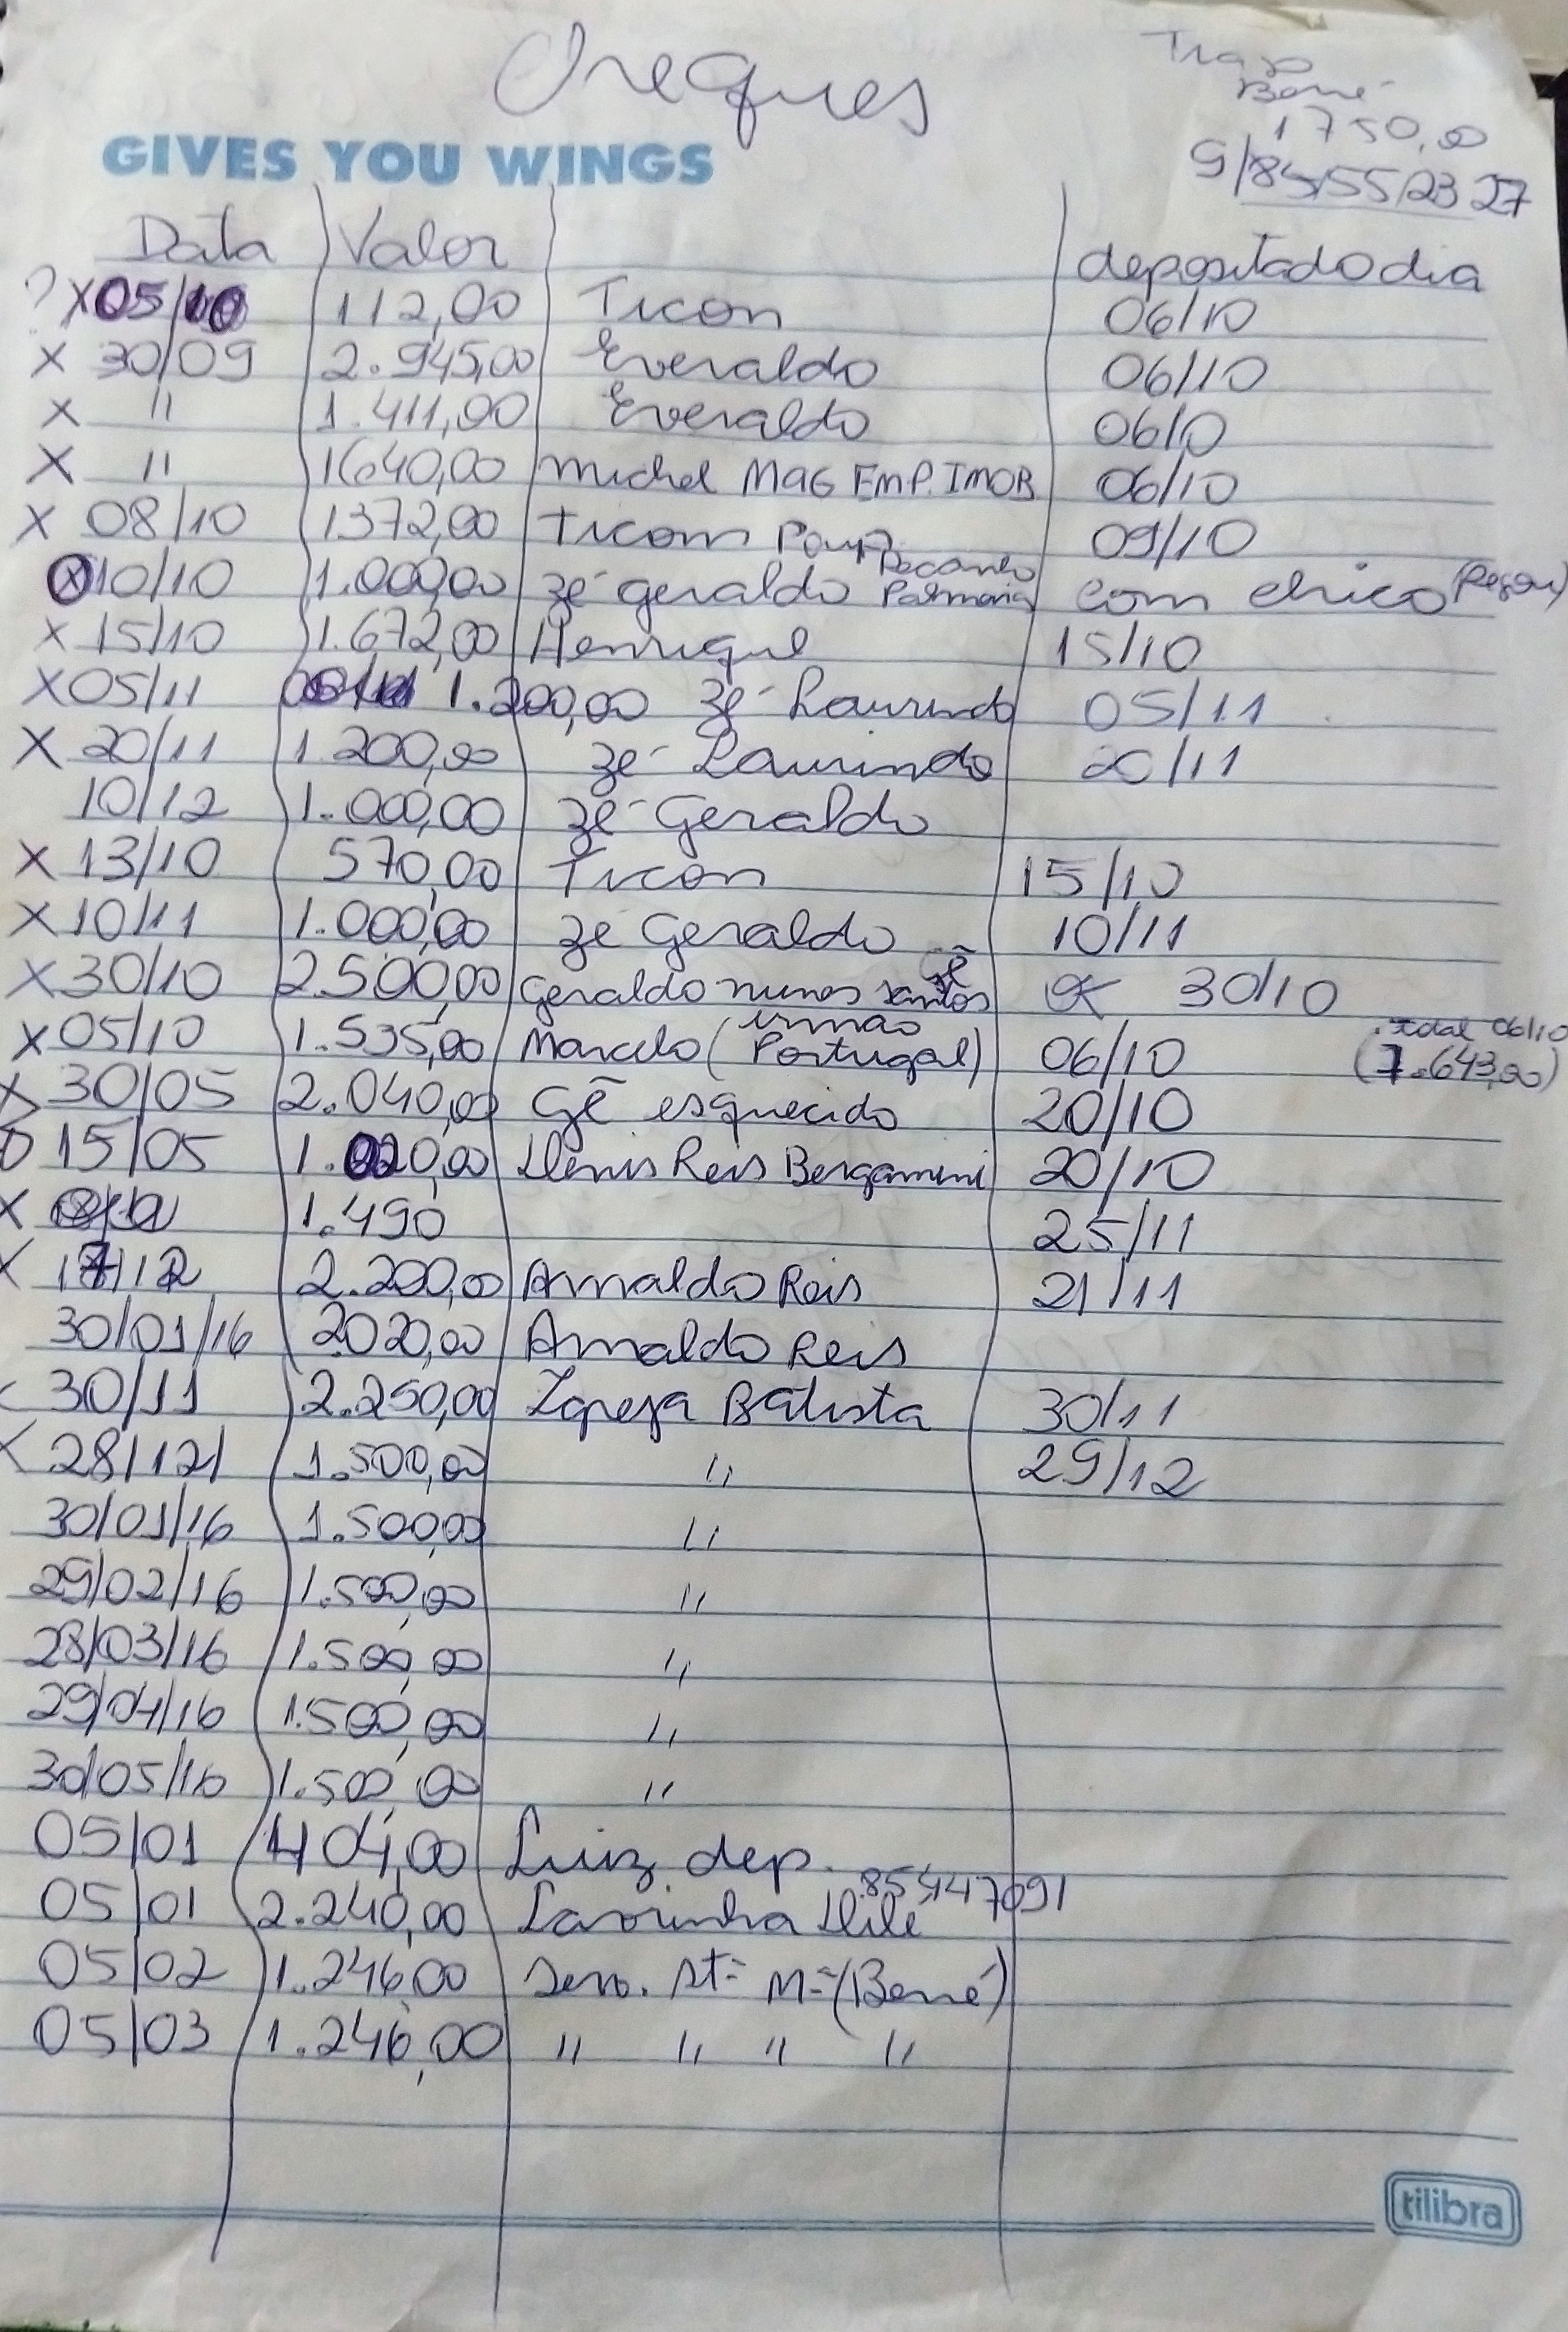 Cheques
Trazo
Bené
1750,00
9/84/55/23 27
GIVES YOU WINGS
Data Valor depositado dia
? X 05/10 112,00 Ticon 06/10
X 30/09 2.945,00 Everaldo 06/10
X " 1.411,00 Everaldo 06/0
X " 1640,00 Michel MAG EMP. IMOB 06/10
X 08/10 1372,00 Ticom 09/10
X 10/10 1.000,00 zé geraldo com chico
X 15/10 1.672,00 Henrique 15/10
X 05/11 1.200,00 zé Laurindo 05/11
X 20/11 1.200,00 zé Laurindo 20/11
10/12 1.000,00 zé Geraldo
X 13/10 570,00 Ticon 15/10
X 10/11 1.000,00 zé Geraldo 10/11
X 30/10 2.500,00 Geraldo nunes santos Gê ok 30/10
X 05/10 1.535,00 Marcelo (irmão Portugal) 06/10 total 06/10 (7.643,00)
X 30/05 2.040,00 Gê esquecido 20/10
0 15/05 1.020,00 Denis Reis Bergamini 20/10
X 1.490 25/11
X 17/12 2.200,00 Arnaldo Reis 21/11
30/01/16 2020,00 Arnaldo Reis
X 30/11 2.250,00 Igreja Batista 30/11
X 28/12/ 1.500,00 " 29/12
30/01/16 1.500,00 "
29/02/16 1.500,00 "
28/03/16 1.500,00 "
29/04/16 1.500,00 "
30/05/16 1.500,00 "
05/01 404,00 Luiz dep.
05/01 2.240,00 Lavrinha 85447091
05/02 1.246,00 Serv. Stª Mª (Bené)
05/03 1.246,00 " " " "
tilibra